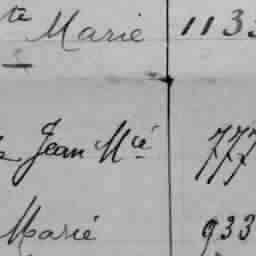 te Marie 113
Jean Mié 777
Marié 933